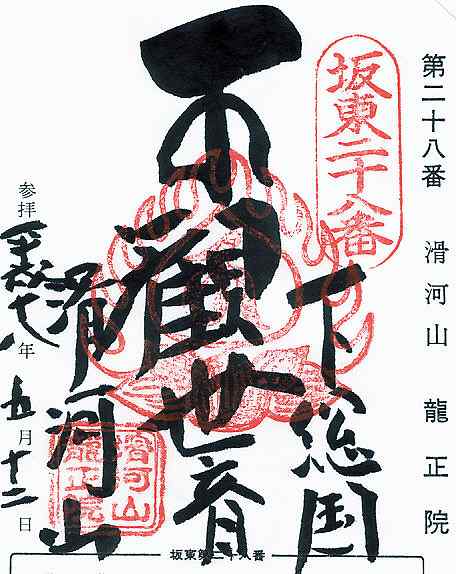 第二十八番 滑河山 龍正院
坂東二十八番
下総国
観世音
滑河山
滑河山
龍正院
参拝
平成十八年五月十二日
坂東第二十八番